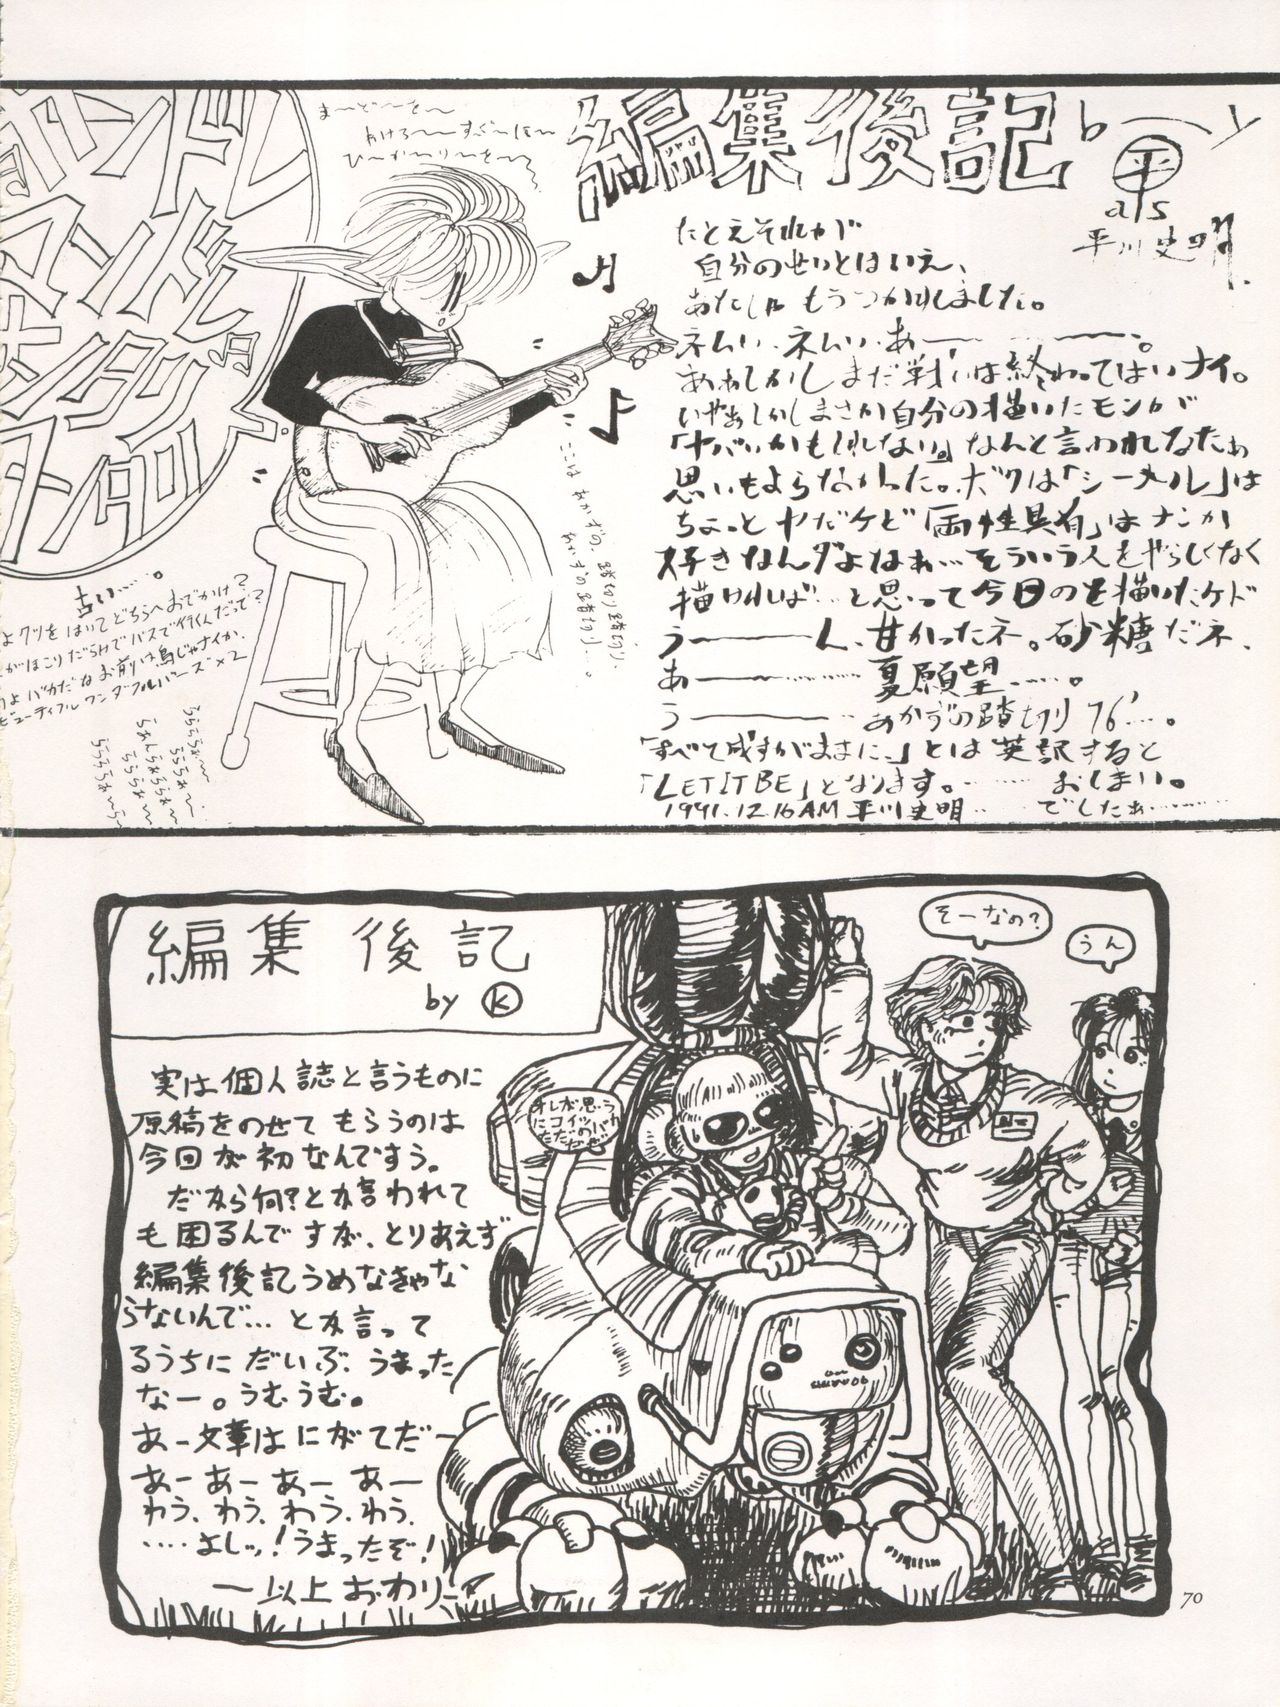 編集後記
by
平
als
平川史明.
たとえそれが
自分のせいとはいえ、
あたしゃ もうつかれしました。
ネムい、ネムい、あーーーー。
あぁしかしまだ戦いは終わってはいナイ。
いやあしかしまさか自分の描いたモンが
「ヤバいかもしれない。」なんと言われなたぁ
思いもよらなかった。ボクは「シーメール」は
ちょっとヤだケど「両性具有」はナンか
好きなんダよねぇ…そういう人をやらしくなく
描ければ…と思って今日のを描いたケド
うーーーん、甘かったネ。砂糖だネ、
あーーー…… 夏願望……。
うーーーー…… あかずの踏切り76'…。
「すべて成すがままに、」とは英訳すると
「LET IT BE」となります。……… おしまい。
1991.12.16AM 平川史明… でしたぁ………
まーどーをー
あけろーーすぐーはー
ひーかーりーをーー
ここは あかずの、踏切り踏切り、
あかずの踏切り…。
古い…。
よクツをはいてどちらへおでかけ?
がほこりだらけでバスで行くんだって?
のよバカだなお前は鳥じゃナイか、
ビューティフルワンダフルバーズ×2
編集後記
by Ⓚ
実は個人誌と言うものに
原稿をのせて もらうのは
今回が初なんですう。
だから何?とか言われて
も困るんですが、とりあえず
編集後記うめなきゃな
らないんで…とか言って
るうちに だいぶ うまった
なー。うむうむ。
あー文章はにがてだー
あーあーあーあー
わう、わう、わう、わう、
‥‥よしッ!うまったぞ!
ー以上 おわりー
オレが思う
にコイツバカ
ただのバカ
だぜ
そーなの?
うん
70